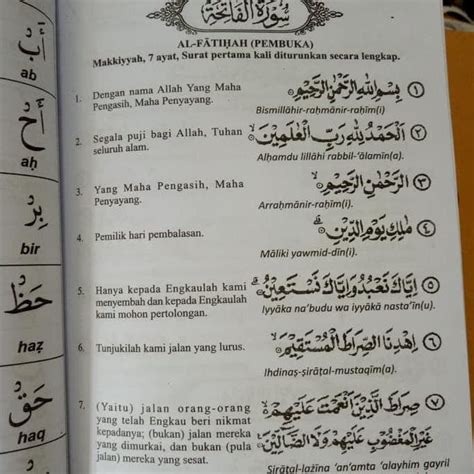 سُوْرَةُ الْفَاتِحَةِ
AL-FĀTIḤAH (PEMBUKA)
Makkiyyah, 7 ayat, Surat pertama kali diturunkan secara lengkap.
1. Dengan nama Allah Yang Maha
Pengasih, Maha Penyayang.
بِسْمِ اللّٰهِ الرَّحْمٰنِ الرَّحِيْمِ ١
Bismillāhir-raḥmānir-raḥīm(i)
2. Segala puji bagi Allah, Tuhan
seluruh alam.
اَلْحَمْدُ لِلّٰهِ رَبِّ الْعٰلَمِيْنَۙ ٢
Alḥamdu lillāhi rabbil-‘ālamīn(a).
3. Yang Maha Pengasih, Maha
Penyayang.
الرَّحْمٰنِ الرَّحِيْمِۙ ٣
Arraḥmānir-raḥīm(i).
4. Pemilik hari pembalasan.
مٰلِكِ يَوْمِ الدِّيْنِۗ ٤
Māliki yawmid-dīn(i).
5. Hanya kepada Engkaulah kami
menyembah dan kepada Engkaulah
kami mohon pertolongan.
اِيَّاكَ نَعْبُدُ وَاِيَّاكَ نَسْتَعِيْنُۗ ٥
Iyyāka na’budu wa iyyākā nasta’īn(u).
6. Tunjukilah kami jalan yang lurus.
اِهْدِنَا الصِّرَاطَ الْمُسْتَقِيْمَۙ ٦
Ihdinaṣ-ṣirāṭal-mustaqīm(a).
7. (Yaitu) jalan orang-orang
yang telah Engkau beri nikmat
kepadanya; (bukan) jalan mereka
yang dimurkai, dan bukan (pula
jalan) mereka yang sesat.
صِرَاطَ الَّذِيْنَ اَنْعَمْتَ عَلَيْهِمْ ەۙ ٧
غَيْرِ الْمَغْضُوْبِ عَلَيْهِمْ وَلَا الضَّاۤلِّيْنَ
Ṣirāṭal-lażīna ‘an’amta ‘alayhim gayril
أَبْ
ab
أَحْ
aḥ
بِرْ
bir
حَظْ
haẓ
حَقْ
haq